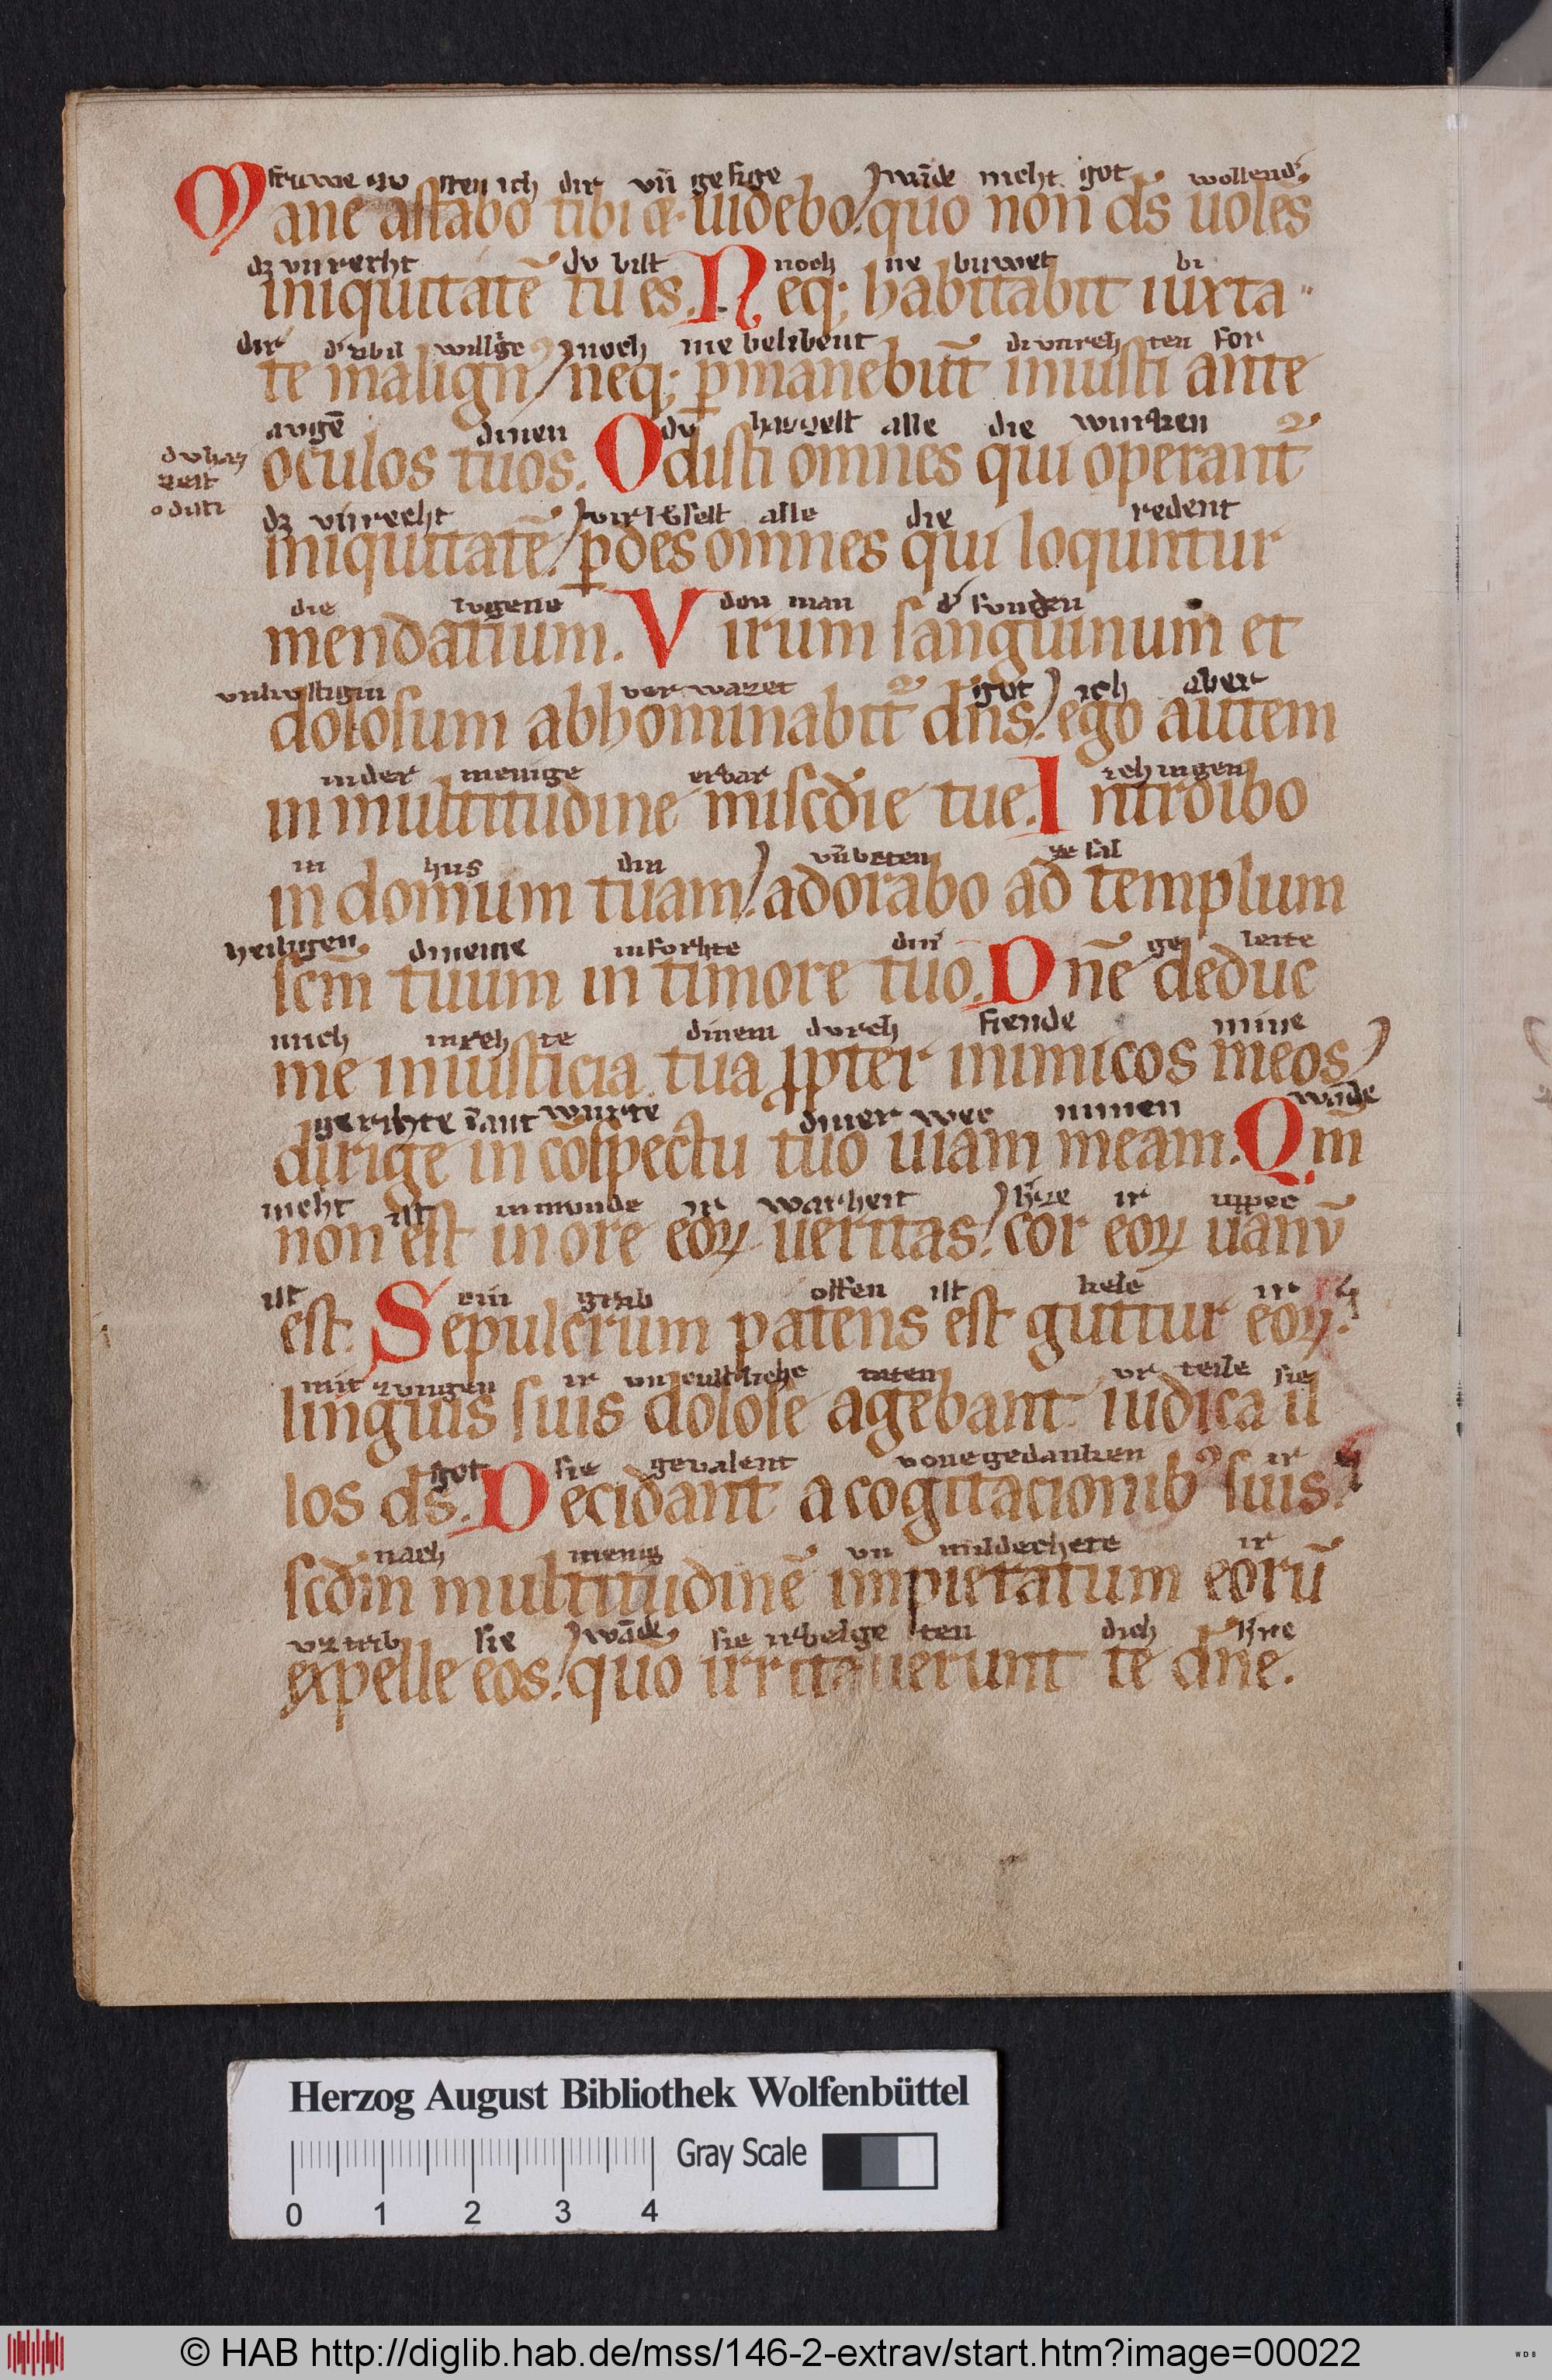 fruwe zv sten ich dir vn̄ gesige wān̄de nicht got wollend᷑
Mane astabo tibi & uidebo. quo non ds̄ uoles
dz vnrecht dv bist noch ne buwet bi
iniquitatē tu es. Neq; habitabit iuxta
dir d᷑ vbil willige noch nie belibent di vnrech ten for
te malign neq; ꝑmanebūt iniusti ante
avgē dinen dv hazzelt alle die wurken
oculos tuos. Odisti omnes qui operant᷑
dv haz
zest
odisti
dz vnrecht virleselt alle die redent
iniquitatē. ꝑdes omnes qui loquntur
die lvgene den man d᷑ svnden
mendatium. Virum sanguinum et
vnlvstigin verwazet got ich aber
dolosum abhominabit᷑ dn̄s. ego autem
in der menige erbar ich ingen
in multitudine misc̄die tue. Introibo
in hus din vn̄ beten ze sal
in domum tuam. adorabo ad templum
heiligen dineme in forhte din ge leite
sc̄m tuum in timore tuo. Dn̄e deduc
mich in reh te dinem durch fiende mine
me in iusticia tua ꝓpter inimicos meos
gerihte diner wec minen wāde
dirige in cōspectu tuo uiam meam. Qm̄
nicht ist in munde ir warheit h̄ze ir uppec
non est in ore eoꝝ ueritas. cor eoꝝ uanū
ist ein grab offen ist kele ir
est. Sepulcrum patens est guttur eoꝝ.
mit zvngen ir taten vr teile sie
linguis suis dolose agebant iudica il
got sie gevalent vone gedanken ir
los ds̄. Decidant a cogitacionibꝰ suis.
nach menig vn mildechete ir
scd̄m multitudinē impietatum eorū
vz trib sie wāde sie irbelge ten dich h᷑re
expelle eos. quō irritauerunt te dn̄e.
Herzog August Bibliothek Wolfenbüttel
Gray Scale
0 1 2 3 4
© HAB http://diglib.hab.de/mss/146-2-extrav/start.htm?image=00022
WDB